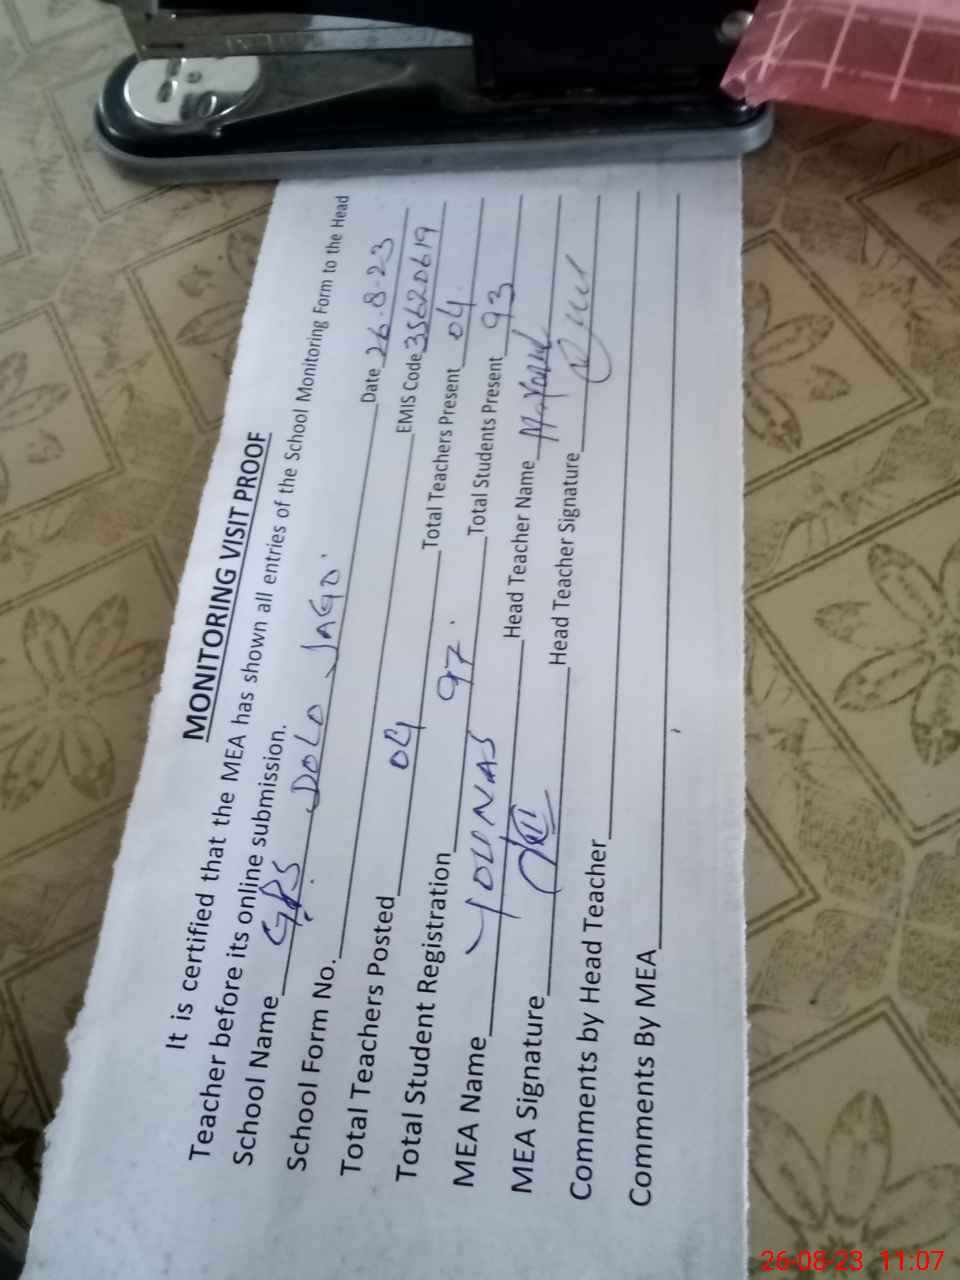 MONITORING VISIT PROOF
It is certified that the MEA has shown all entries of the School Monitoring Form to the Head
Teacher before its online submission.
School Name GPS DOLO JAGO.
School Form No. Date 26.8.23
Total Teachers Posted 04 EMIS Code 35620619
Total Student Registration 97. Total Teachers Present 04.
MEA Name YOUNAS Total Students Present 93
MEA Signature Head Teacher Name
Head Teacher Signature
Comments by Head Teacher
Comments By MEA
26-08-23 11:07